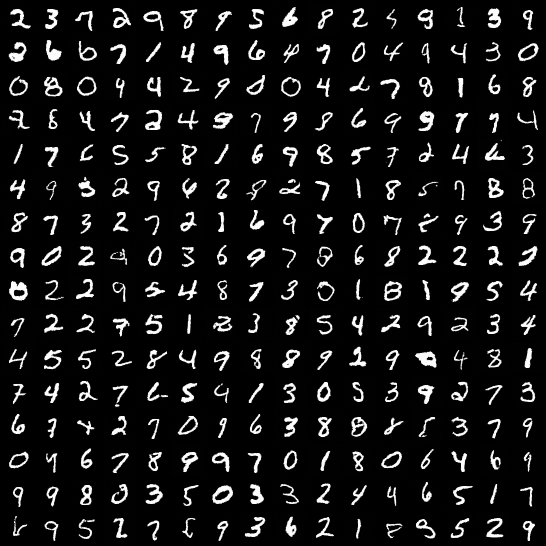 2 3 7 2 9 8 9 5 6 8 2 5 9 1 3 9
2 6 6 7 1 4 9 6 4 7 0 4 9 4 3 0
0 8 0 9 4 2 9 0 0 4 2 7 8 1 6 8
2 8 4 7 2 4 9 7 9 8 6 9 9 7 7 4
1 7 6 5 5 8 1 6 9 8 5 7 2 4 6 3
4 9 3 2 9 6 2 8 2 7 1 8 5 7 8 8
8 7 3 2 7 2 1 6 9 7 0 7 8 9 3 9
9 0 2 9 0 3 6 9 7 8 6 8 2 2 2 2
8 2 2 9 5 4 8 7 3 0 1 8 1 9 5 4
7 2 2 7 5 1 2 3 8 5 4 2 9 2 3 4
4 5 5 2 8 4 9 8 8 9 2 9 4 8 1
7 4 2 7 6 5 9 1 3 0 5 3 9 2 7 3
6 7 4 2 7 0 9 6 3 8 8 8 5 3 7 9
0 9 6 7 8 9 9 7 0 1 8 0 6 4 6 9
9 9 8 0 3 5 0 3 3 2 4 4 6 5 1 7
6 9 5 2 7 5 9 3 6 2 1 8 9 5 2 9